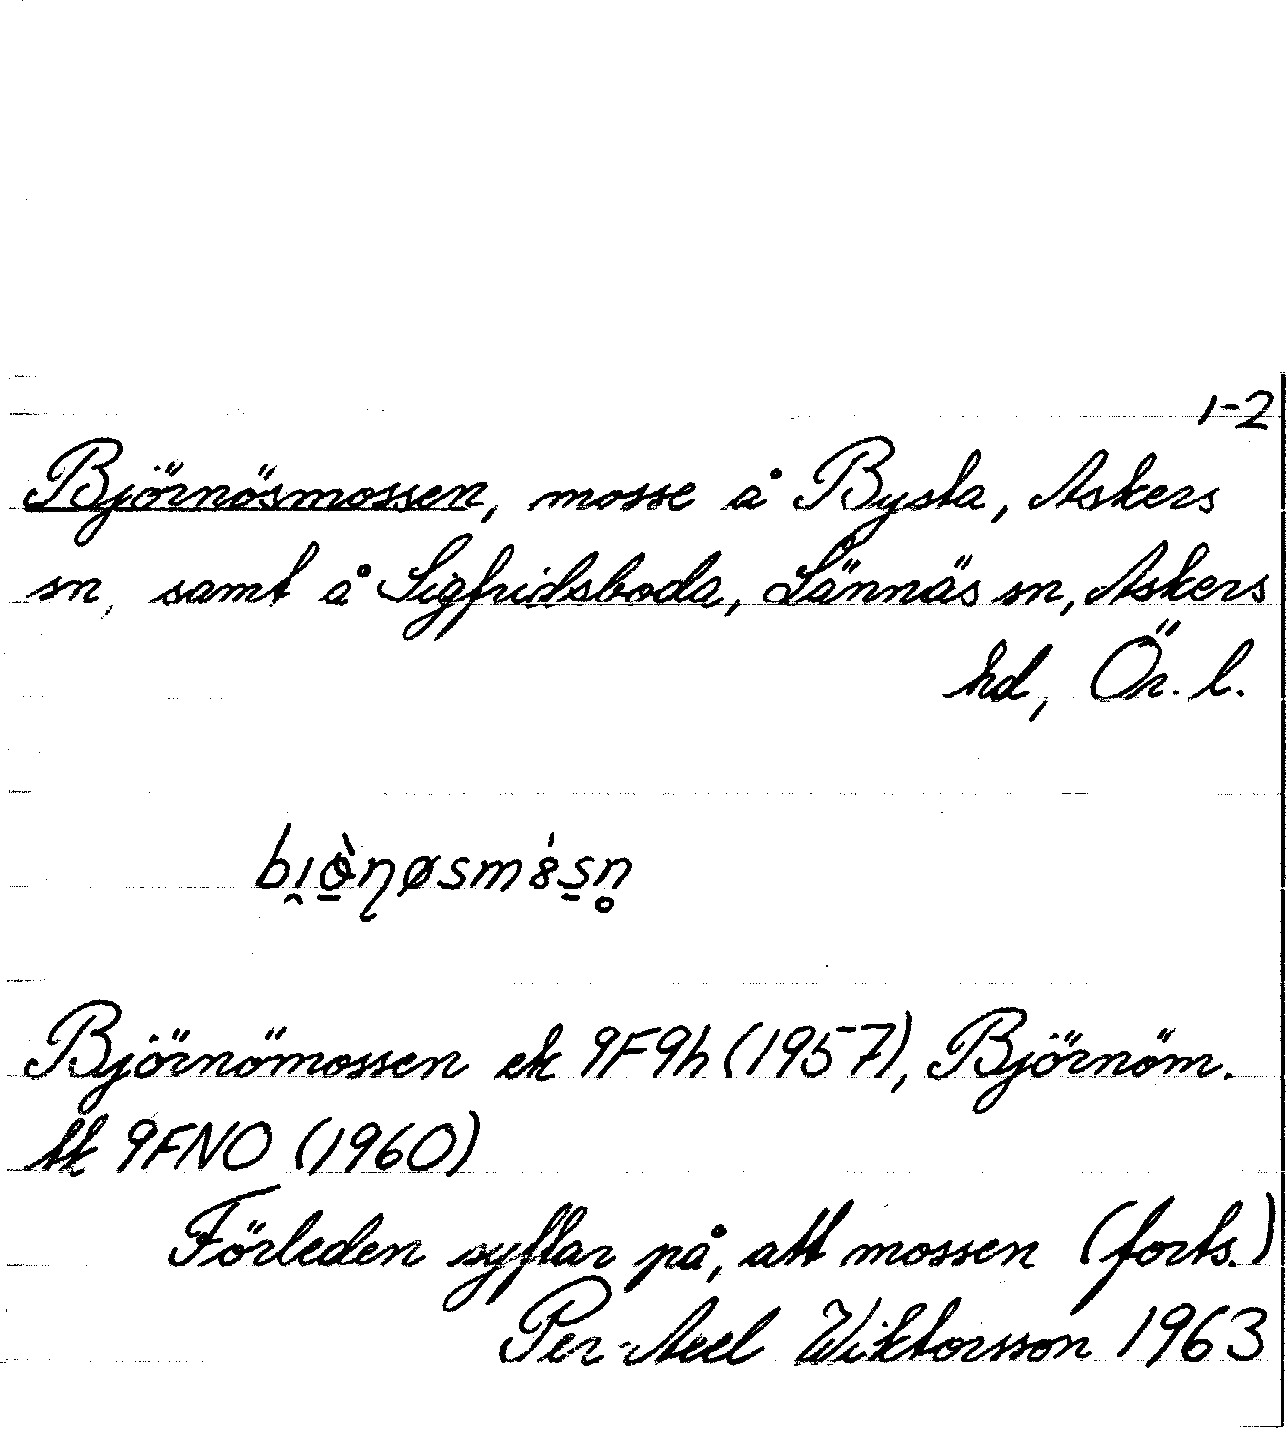 1-2
Björnösmossen, mosse å Bysta, Askers
sn, samt å Sigfridsboda, Lännäs sn, Askers
hd, Ör. l.
Björnömossen ek 9F9h (1957), Björnöm.
tk 9FNO (1960)
Förleden syftar på, att mossen (forts.)
Per-Axel Wiktorsson 1963